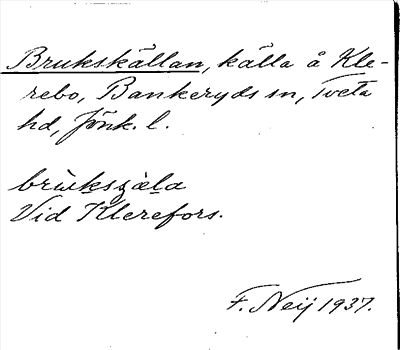 Brukskällan, källa å Kle-
rebo, Bankeryds sn, Tveta
hd, Jönk. l.
brùksȥæ̀la
Vid Klerefors.
F. Neij 1937.